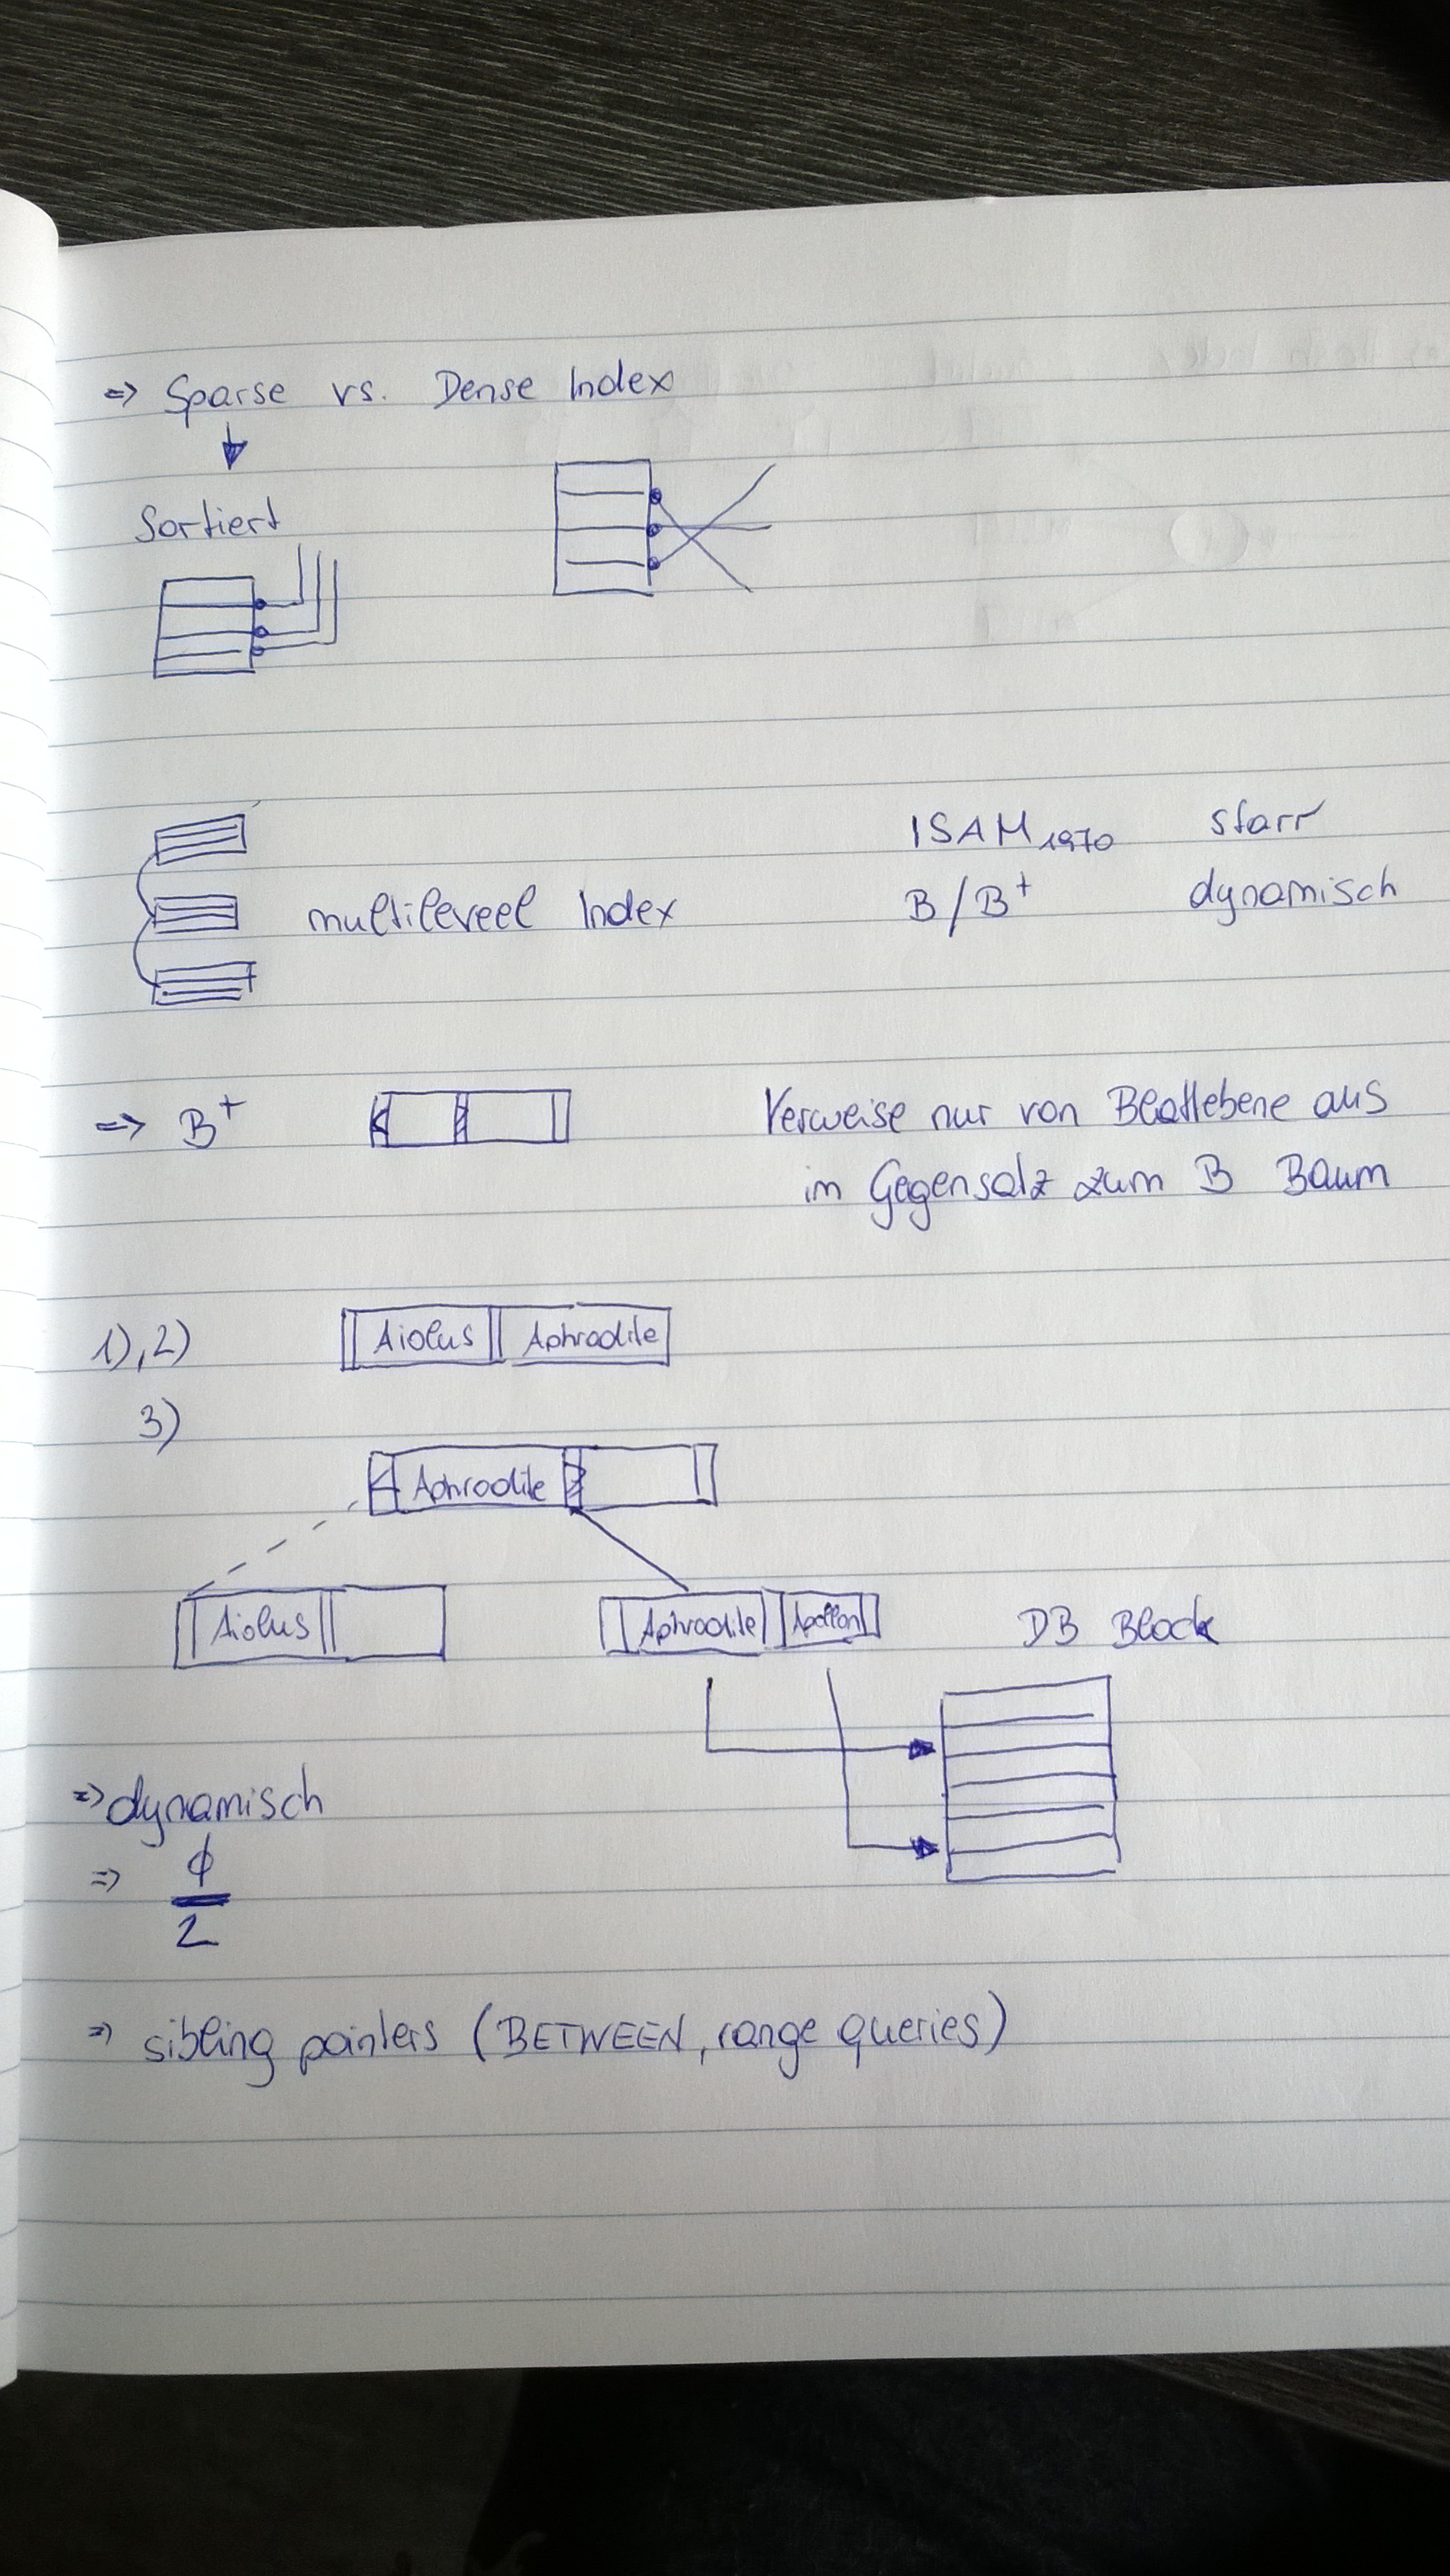 => Sparse vs. Dense Index
Sortiert
ISAM 1970 starr
multileveel Index B/B+ dynamisch
=> B+ Verweise nur von Blattebene aus
im Gegensatz zum B Baum
1), 2) Aiolus Aphrodite
3)
Aphrodite
Aiolus Aphrodite Apollon DB Block
=> dynamisch
=> ϕ
2
=> sibling pointers (BETWEEN, range queries)